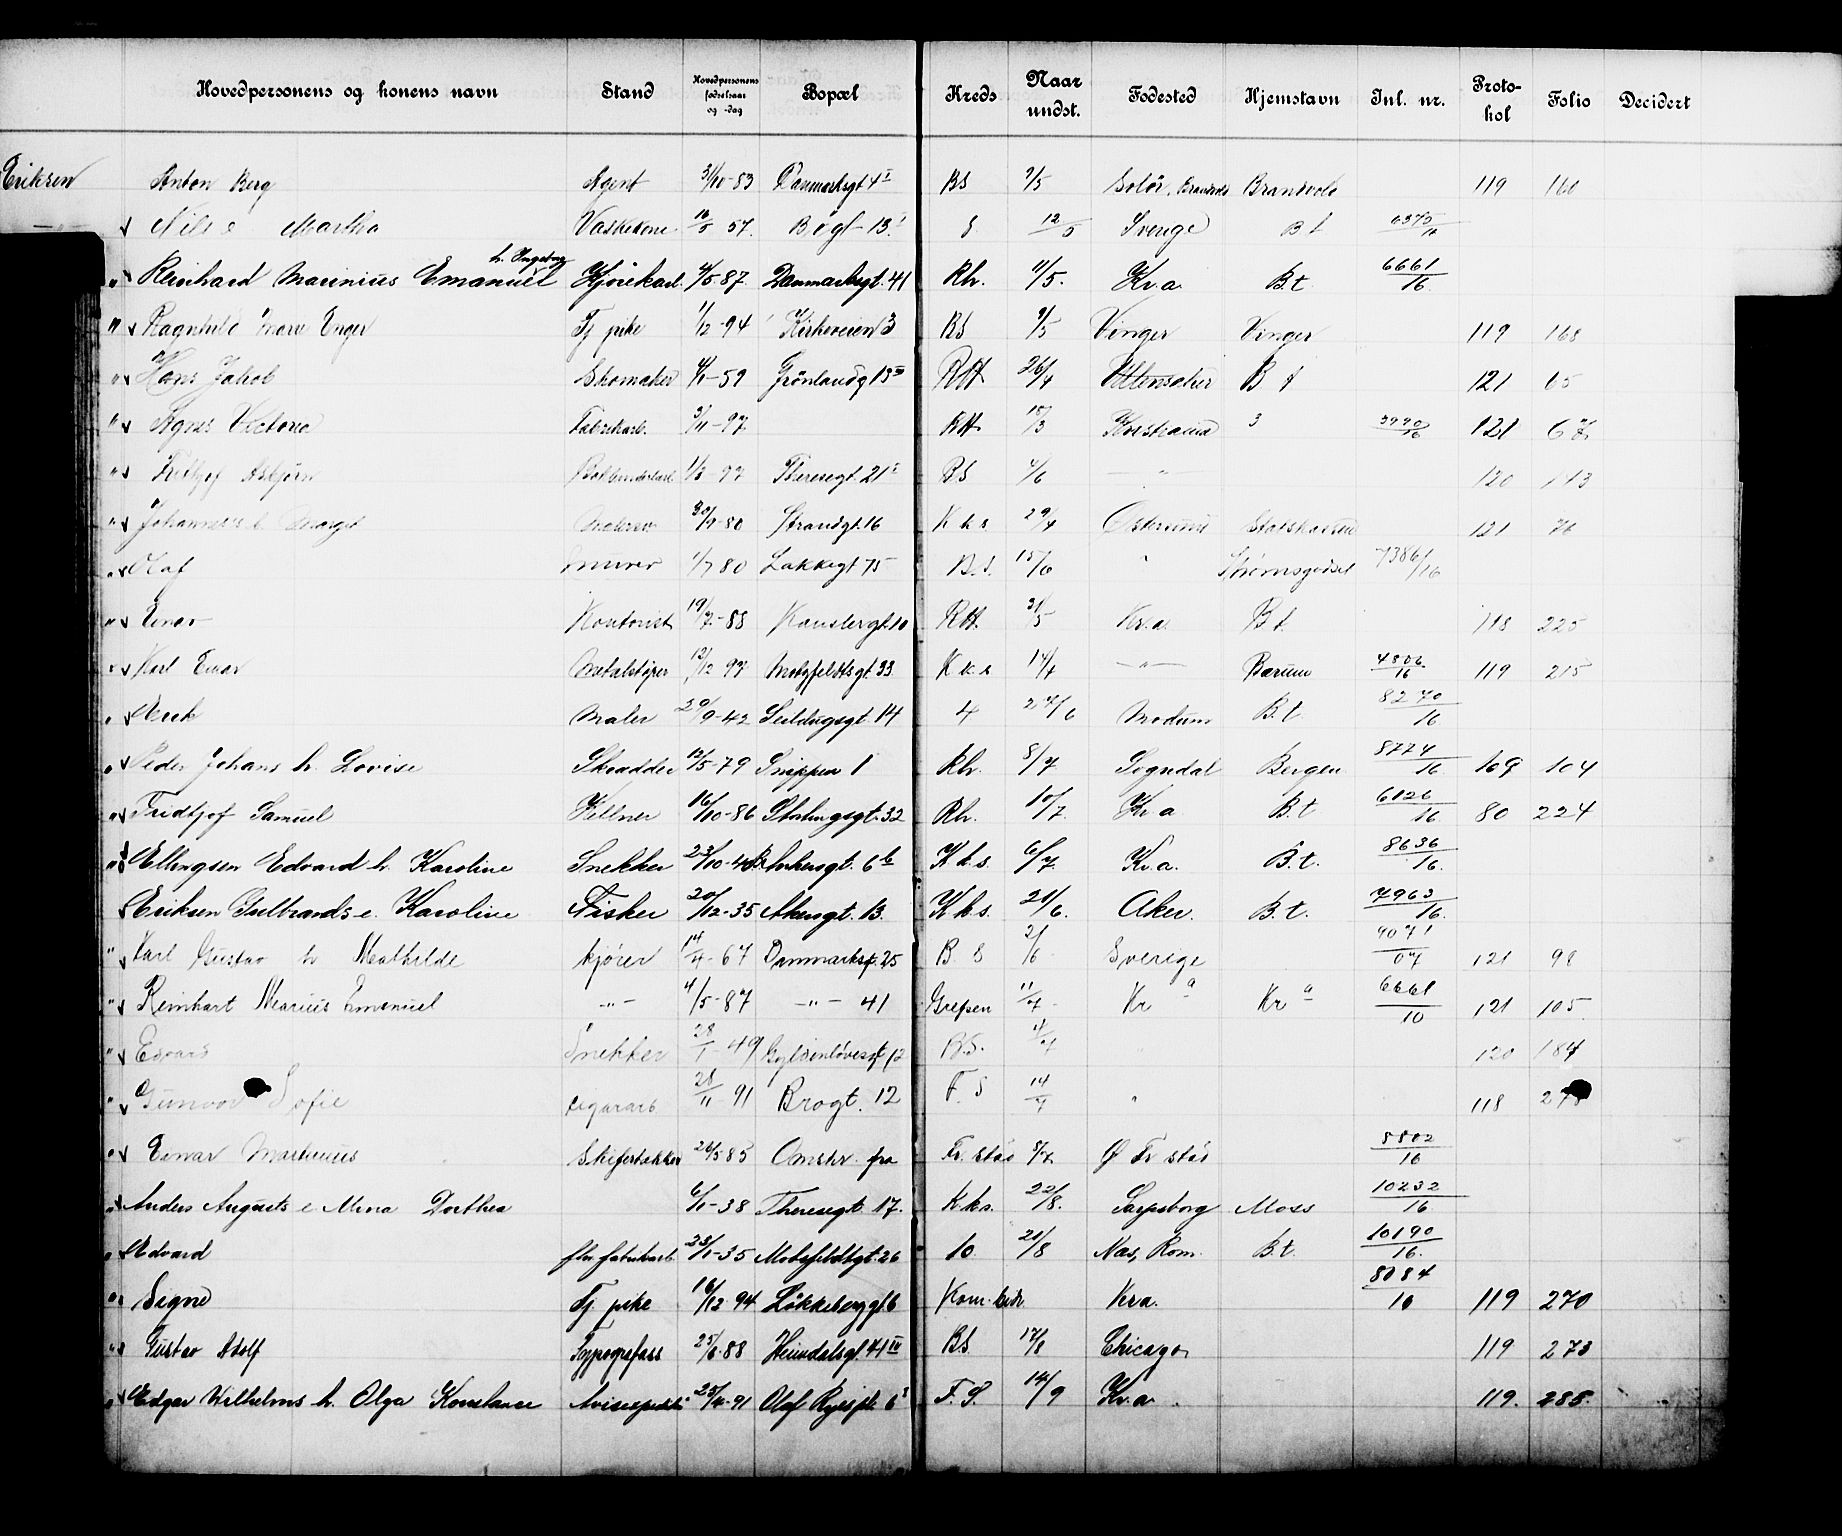 Hovedpersonens og konens navn Stand Hovedpersonens fødselsaar og -dag Bopæl Kreds Naar undst. Fødested Hjemstavn Inl. nr. Proto-kol Folio Decidert
Eriksen Anton Berg Agent 31/10-83 Danmarksgt 4 I BS 9/5 Solør, Brandvold 119 160
Nils e Martha Vaskekone 57 Bogt 13 I 12/5 Sverige B t 6375/16
" Reinhard Marinius Emanuel h. Ingeborg Kjørekarl 4/5 87. Danmarksgt. 41 Rh. 11/5. Kr.a. B.t. 6661/16.
" Ragnhild Marie Enger Tj pike 1/12-94 Kirkeveien 3 BS 9/5 Vinger Vinger 119 168
" Hans Jakob Skomaker 4/1-59 Grønlandg 13 III RH 26/4 B t 121 65
" Agnes Victoria Fabrikarb. 3/11-97 RH 18/3 3 3990/16 121 67
" Fritjof Asbjørn 1/3-97 Theresegt. 21 I BS 4/6 " 120 143
" Johannes e Margit 30/9-80 Strandgt. 16 K k s 29/4 121 76
" Olaf murer 1/7 80 Lakkegt 75 B.S. 15/6 " Strømsgodset 7386/16
" Einar Kontorist 19/7-88 Kanslergt. 10 RH. 31/5 Kr.a. B t. 118 225
" Karl Einar Metalstøper 12/12 97 Motzfeldtsgt. 33 K k s 14/4 " Bærum 4806/16 119 215
" Erik Maler 29/9-42 Seildugsgt 14 4 24/6 Modum B.t 8270/16
" Peder Johans h. Lovise Skrædder 12/5-79 Snippen 1 Rh. 8/7 Sogndal Bergen 8774/16 109 104
" Fridtjof Samuel Kellner 16/10-86 Stortingsgt. 32 Rh. 10/7. Kr a B.t 6126/16 80 224
" Ellingsen Edvard h. Karoline Snekker 23/10-4 6 b K.k.s. 6/7. Kr.a. B.t. 8636/16.
Eriksen Gulbrands e. Karoline Fisker 20/12-35 Akersgt. 13. K.k.s. 21/6. Aker. B.t. 7963/16.
" Karl Gustav h Mathilde kjører 14/4-67 Danmarksg. 25 B. S 21/6 Sverige 9071/07 121 98
" Reinhart Marius Emanuel -"- 4/5-87 -"- 41 Grefsen 11/7 Kr a Kr a 6661/10 121 105
" Edvard Snekker 28/1-49 Gyldenløvesg 12 B.S. 4/7 120 184
" Gunvor Sofie cigararb 28/11-91 Brogt. 12 F. S 14/7 " 118
" Einar Martinius Skifertækker 26/5 85 Omstr. fra Fr. stad 8/7 Ø Fr stad 8802/16
" Anders Augusts e Mina Dorthea 6/1-38 Theresegt. 17. K.k.s. 22/8. Sarpsborg Moss 10232/16
" Edvard fhv. fabrikarb. 23/1-35 Motzfeldtsgt. 26 10 21/8 Næs, Rom. B.t. 10190/16.
" Signe Tj. pike 16/12 94 Løkkeberggt. 6 Kom. bedr. Kra. 8084/10 119 270
" Gustav Adolf Typografass 25/6-88 Heimdalsgt. 41 IV BS. 17/8 Chicago 119 273
" Edgar Wilhelms h. Olga Konstanse 25/4-91 Olaf Ryes pl. 6 I F. S. 14/9 Kr.a. 119. 285.